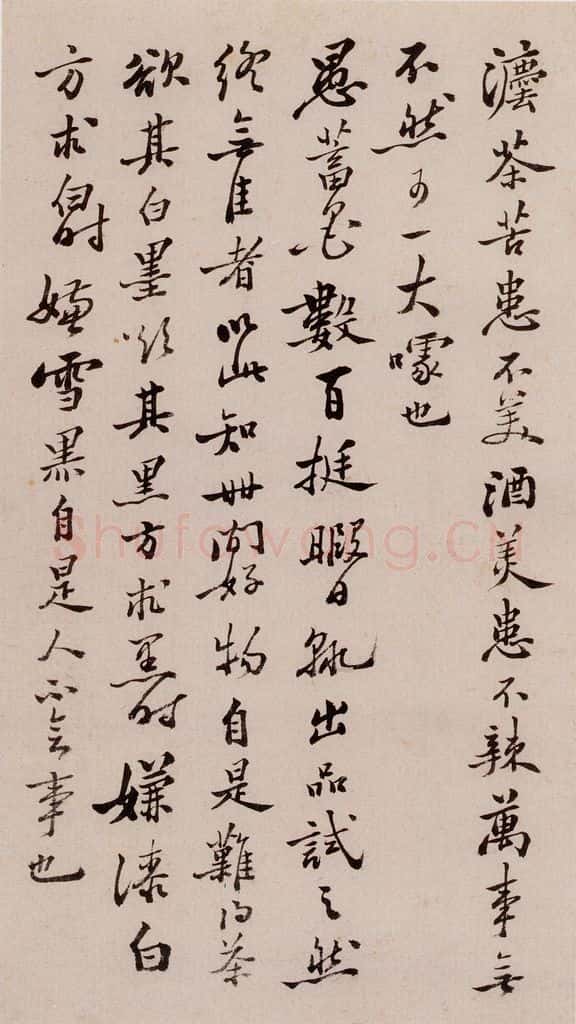 茶苦患不美酒美患不辣萬事無
不然可一大噱也
愚蓄墨數百挺暇日輒出品試之然
終無佳者以此知世間好物自是難得茶
欲其白墨欲其黑方求黑時嫌漆白
方求白時嫌雪黑自是人不會事也
Shufawang.cn